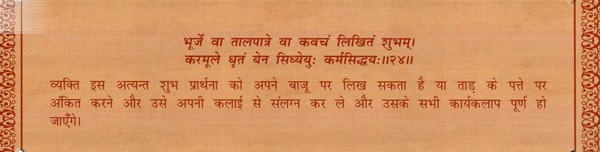 भूर्जे वा तालपात्रे वा कवचं लिखितं शुभम्।
करमूले धृतं येन सिध्येयुः कर्मसिद्धयः॥२४॥
व्यक्ति इस अत्यन्त शुभ प्रार्थना को अपने बाजू पर लिख सकता है या ताड़ के पत्ते पर
अंकित करने और उसे अपनी कलाई से संलग्न कर ले और उसके सभी कार्यकलाप पूर्ण हो
जाएँगे।